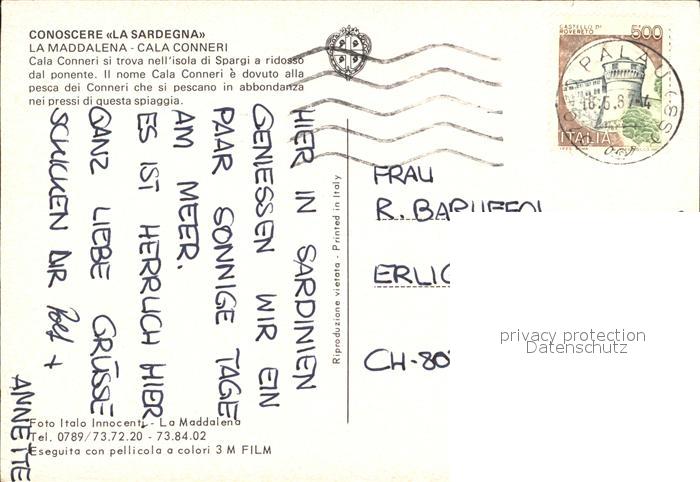 CONOSCERE «LA SARDEGNA»
LA MADDALENA - CALA CONNERI
Cala Conneri si trova nell'isola di Spargi a ridosso
dal ponente. Il nome Cala Conneri è dovuto alla
pesca dei Conneri che si pescano in abbondanza
nei pressi di questa spiaggia.
HIER IN SARDINIEN
GENIESSEN WIR EIN
PAAR SONNIGE TAGE
AM MEER.
ES IST HERRLICH HIER.
GANZ LIEBE GRÜSSE
SCHICKEN DIR +
ANNETTE
Foto Italo Innocenti - La Maddalena
Tel. 0789/73.72.20 - 73.84.02
Eseguita con pellicola a colori 3 M FILM
Riproduzione vietata - Printed in Italy
CASTELLO DI
ROVERETO
500
PALAU (SS)
16.5.87
ITALIA
FRAU
R. BARUFFOL
ERLIC
CH-80
privacy protection
Datenschutz